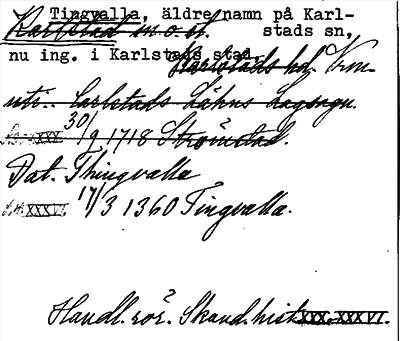 Tingvalla, äldre namn på Karl-
Karlstad m.o.st. stads sn,
nu ing. i Karlstads stad.
Karlstads hd. Vrm.
utr.. Carlstads Låhns Lagsagu.
XXX 30/9 1718 Strömstad.
Dat. Thingvalla
XXXVI. 17/3 1360 Tingvalla.
Handl. rör. Skand. hist. XXX. XXXVI.